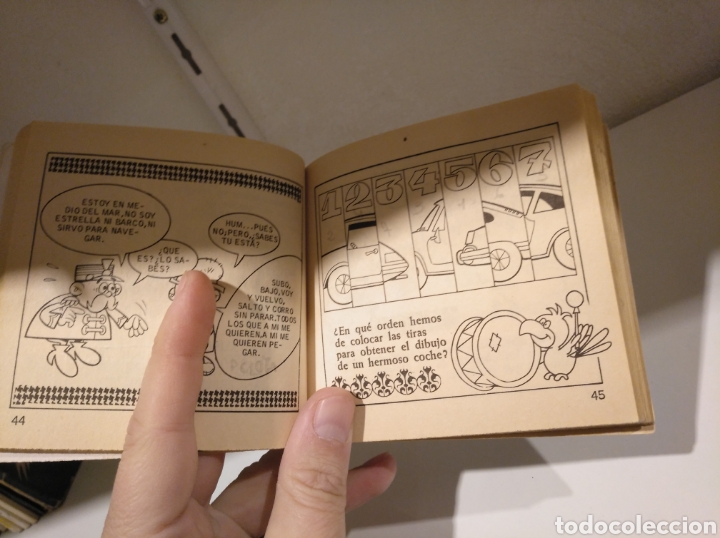 ESTOY EN ME-
DIO DEL MAR, NO SOY
ESTRELLA NI BARCO, NI
SIRVO PARA NAVE-
GAR.
¿QUE
ES? ¿LO SA-
BÉS?
HUM... PUES
NO; PERO, ¿SABES
TU ESTA?
SUBO,
BAJO, VOY
Y VUELVO,
SALTO Y CORRO
SIN PARAR. TODOS
LOS QUE A MI ME
QUIEREN, A MI ME
QUIEREN PE-
GAR.
44
1 2 3 4 5 6 7
¿En qué orden hemos
de colocar las tiras
para obtener el dibujo
de un hermoso coche?
45
todocoleccion